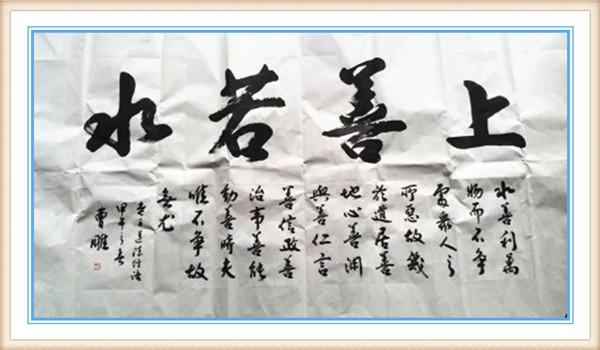 上善若水
水善利萬
物而不争
處衆人之
所惡故幾
於道居善
地心善淵
與善仁言
善信政善
治事善能
動善時夫
唯不争故
無尤
老子道德經語
甲午之春
曹